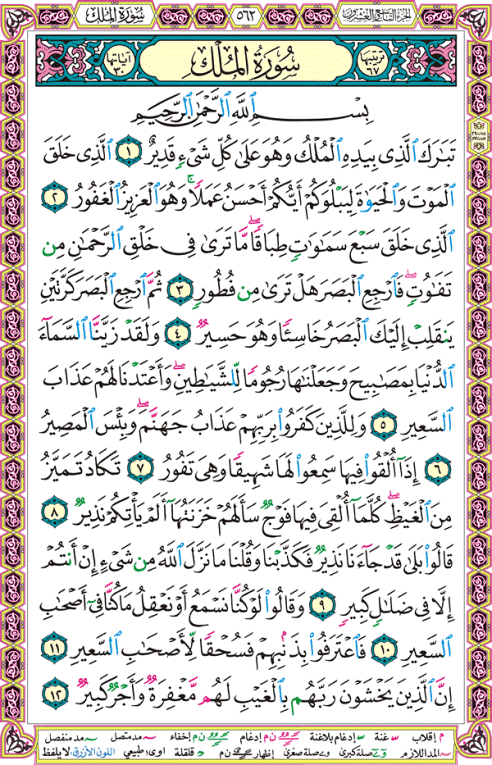 الجزء التاسع والعشرون
٥٦٢
سورة الملك
ترتيبها ٦٧
سُورَةُ المُلْكِ
آياتها ٣٠
بِسْمِ اللَّهِ الرَّحْمَٰنِ الرَّحِيمِ
تَبَٰرَكَ الَّذِي بِيَدِهِ الْمُلْكُ وَهُوَ عَلَىٰ كُلِّ شَيْءٍ قَدِيرٌ ١ الَّذِي خَلَقَ
الْمَوْتَ وَالْحَيَوٰةَ لِيَبْلُوَكُمْ أَيُّكُمْ أَحْسَنُ عَمَلًا ۚ وَهُوَ الْعَزِيزُ الْغَفُورُ ٢
الَّذِي خَلَقَ سَبْعَ سَمَٰوَٰتٍ طِبَاقًا ۖ مَّا تَرَىٰ فِي خَلْقِ الرَّحْمَٰنِ مِن
تَفَٰوُتٍ ۖ فَارْجِعِ الْبَصَرَ هَلْ تَرَىٰ مِن فُطُورٍ ٣ ثُمَّ ارْجِعِ الْبَصَرَ كَرَّتَيْنِ
يَنقَلِبْ إِلَيْكَ الْبَصَرُ خَاسِئًا وَهُوَ حَسِيرٌ ٤ وَلَقَدْ زَيَّنَّا السَّمَاءَ
الدُّنْيَا بِمَصَٰبِيحَ وَجَعَلْنَٰهَا رُجُومًا لِّلشَّيَٰطِينِ ۖ وَأَعْتَدْنَا لَهُمْ عَذَابَ
السَّعِيرِ ٥ وَلِلَّذِينَ كَفَرُوا بِرَبِّهِمْ عَذَابُ جَهَنَّمَ ۖ وَبِئْسَ الْمَصِيرُ
٦ إِذَا أُلْقُوا فِيهَا سَمِعُوا لَهَا شَهِيقًا وَهِيَ تَفُورُ ٧ تَكَادُ تَمَيَّزُ
مِنَ الْغَيْظِ ۖ كُلَّمَا أُلْقِيَ فِيهَا فَوْجٌ سَأَلَهُمْ خَزَنَتُهَا أَلَمْ يَأْتِكُمْ نَذِيرٌ ٨
قَالُوا بَلَىٰ قَدْ جَاءَنَا نَذِيرٌ فَكَذَّبْنَا وَقُلْنَا مَا نَزَّلَ اللَّهُ مِن شَيْءٍ إِنْ أَنتُمْ
إِلَّا فِي ضَلَٰلٍ كَبِيرٍ ٩ وَقَالُوا لَوْ كُنَّا نَسْمَعُ أَوْ نَعْقِلُ مَا كُنَّا فِي أَصْحَٰبِ
السَّعِيرِ ١٠ فَاعْتَرَفُوا بِذَنبِهِمْ فَسُحْقًا لِّأَصْحَٰبِ السَّعِيرِ ١١
إِنَّ الَّذِينَ يَخْشَوْنَ رَبَّهُم بِالْغَيْبِ لَهُم مَّغْفِرَةٌ وَأَجْرٌ كَبِيرٌ ١٢
م إقلاب س غنة إدغام بلاغنة ن م إدغام ن م إخفاء مد متصل مد منفصل
المد اللازم صلة كبرى صلة صغرى إظهار ن م قلقلة اوى: طبيعي اللون الأزرق: لا يلفظ